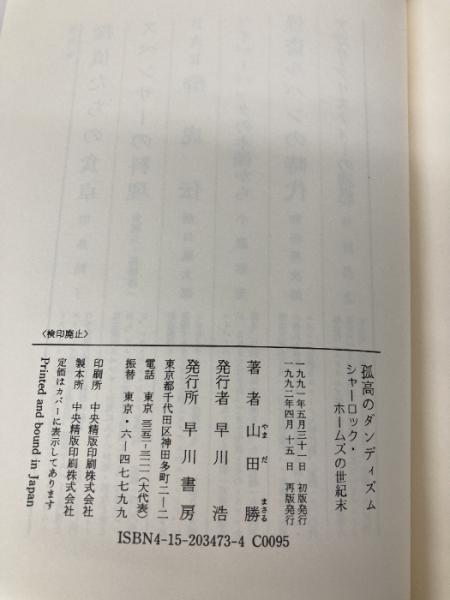 孤高のダンディズム
シャーロック・
ホームズの世紀末
一九九一年五月三十一日 初版発行
一九九二年四月 十五日 再版発行
著者 山田 勝
やま だ まさる
発行者 早川 浩
発行所 早川書房
東京都千代田区神田多町二ー二
電話 東京 三二五二ー三一一一(大代表)
振替 東京・六ー四七七九九
印刷所 中央精版印刷株式会社
製本所 中央精版印刷株式会社
定価はカバーに表示してあります
Printed and bound in Japan
〈検印廃止〉
ISBN4-15-203473-4 C0095